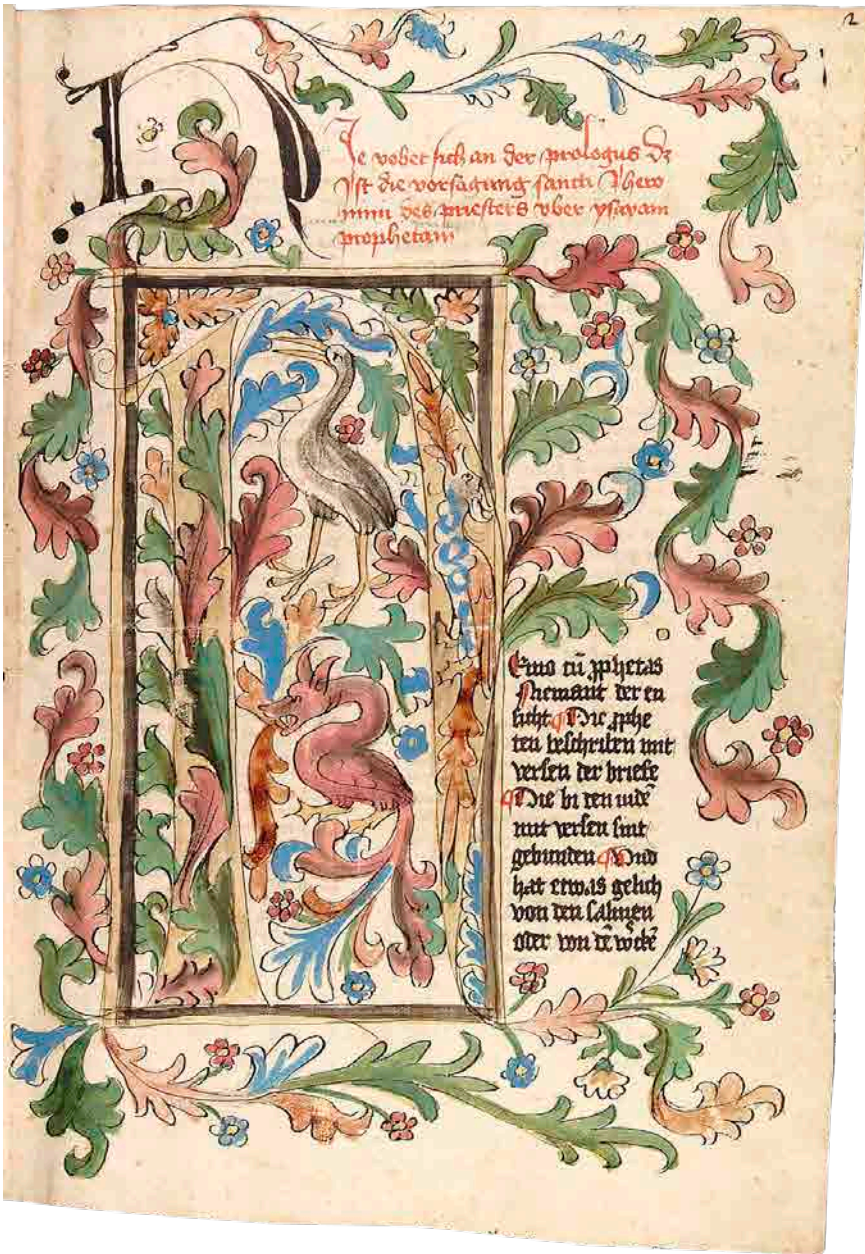 2
Hie vohet sich an der prologus dz
yst die vorsagung sancti Ihero
nimi des priesters vber ysayam
prophetam
Nemo cū ꝓphetas
Niemant der en
sicht Die ꝓphe
ten beschriben mit
versen der briefe
Die bi den iudē
mit versen sint
gebunden Vnd
hat etwas gelich
von den salmen
oder von dē